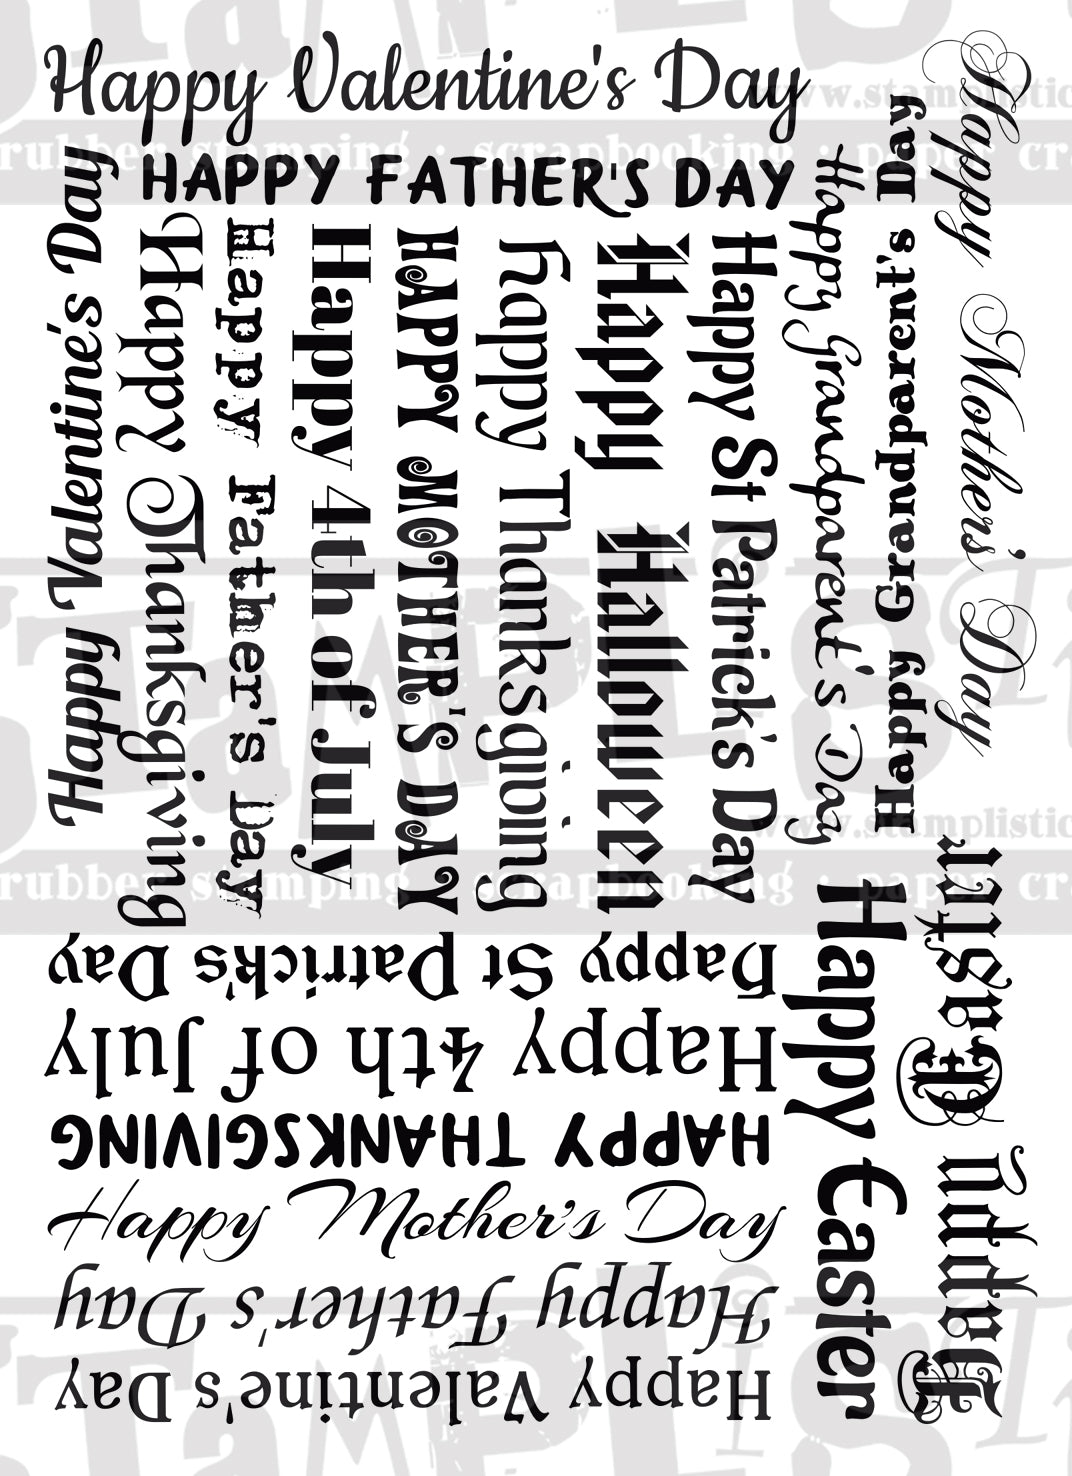 Happy Valentine's Day
HAPPY FATHER'S DAY
Happy Valentine's Day
Happy Thanksgiving
Happy Father's Day
Happy 4th of July
HAPPY MOTHER'S DAY
Happy Thanksgiving
Happy Halloween
Happy St Patrick's Day
Happy Grandparent's Day
Happy Grandparent's Day
Happy Mother's Day
Happy Easter
Happy Easter
Happy St Patrick's Day
Happy 4th of July
HAPPY THANKSGIVING
Happy Mother's Day
Happy Father's Day
Happy Valentine's Day
www.stamplistic
rubber stamping : scrapbooking : paper cr
STAMPLISTI
www.stamplistic
rubber stamping : scrapbooking : paper cr
STAMPLISTI